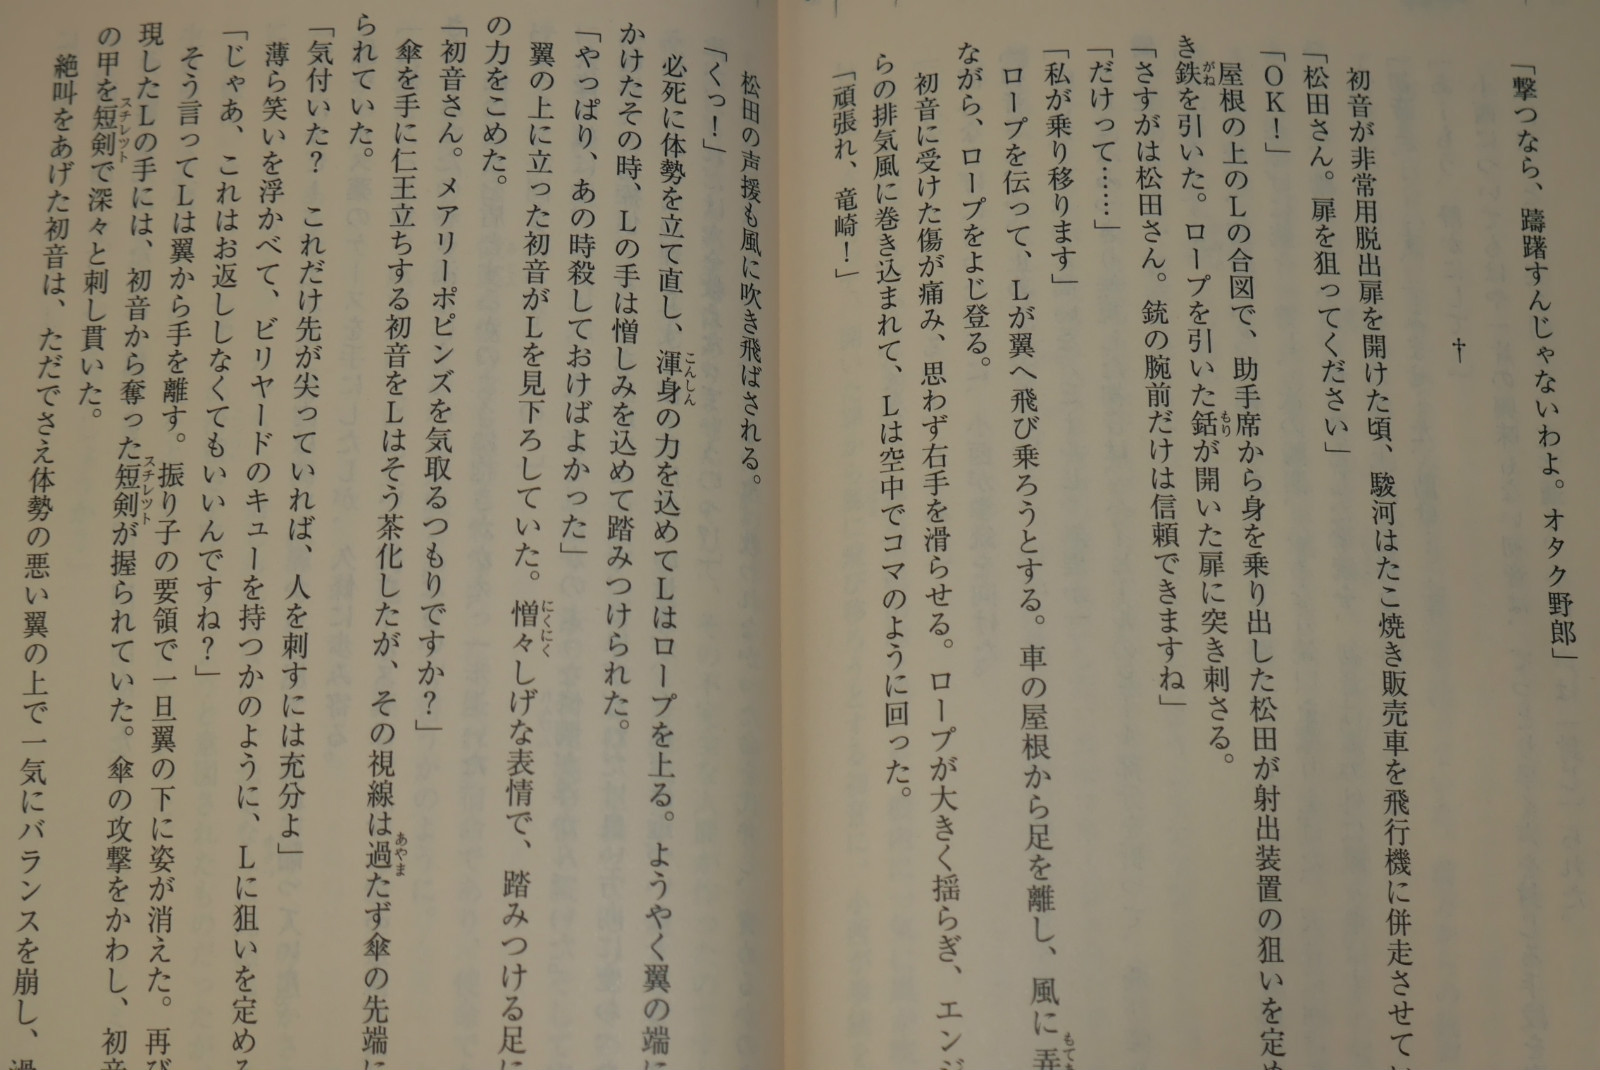 「撃つなら、躊躇すんじゃないわよ。オタク野郎」
†
初音が非常用脱出扉を開けた頃、駿河はたこ焼き販売車を飛行機に併走させてい
「松田さん。扉を狙ってください」
「OK！」
屋根の上のLの合図で、助手席から身を乗り出した松田が射出装置の狙いを定め
き鉄を引いた。ロープを引いた銛が開いた扉に突き刺さる。
「さすがは松田さん。銃の腕前だけは信頼できますね」
「だけって……」
「私が乗り移ります」
ロープを伝って、Lが翼へ飛び乗ろうとする。車の屋根から足を離し、風に弄
ながら、ロープをよじ登る。
初音に受けた傷が痛み、思わず右手を滑らせる。ロープが大きく揺らぎ、エンジ
らの排気風に巻き込まれて、Lは空中でコマのように回った。
「頑張れ、竜崎！」
松田の声援も風に吹き飛ばされる。
「くっ！」
必死に体勢を立て直し、渾身の力を込めてLはロープを上る。ようやく翼の端に
かけたその時、Lの手は憎しみを込めて踏みつけられた。
「やっぱり、あの時殺しておけばよかった」
翼の上に立った初音がLを見下ろしていた。憎々しげな表情で、踏みつける足に
の力をこめた。
「初音さん。メアリーポピンズを気取るつもりですか？」
傘を手に仁王立ちする初音をLはそう茶化したが、その視線は過たず傘の先端に
られていた。
「気付いた？　これだけ先が尖っていれば、人を刺すには充分よ」
薄ら笑いを浮かべて、ビリヤードのキューを持つかのように、Lに狙いを定める
「じゃあ、これはお返ししなくてもいいんですね？」
そう言ってLは翼から手を離す。振り子の要領で一旦翼の下に姿が消えた。再び
現したLの手には、初音から奪った短剣が握られていた。傘の攻撃をかわし、初音
の甲を短剣で深々と刺し貫いた。
絶叫をあげた初音は、ただでさえ体勢の悪い翼の上で一気にバランスを崩し、